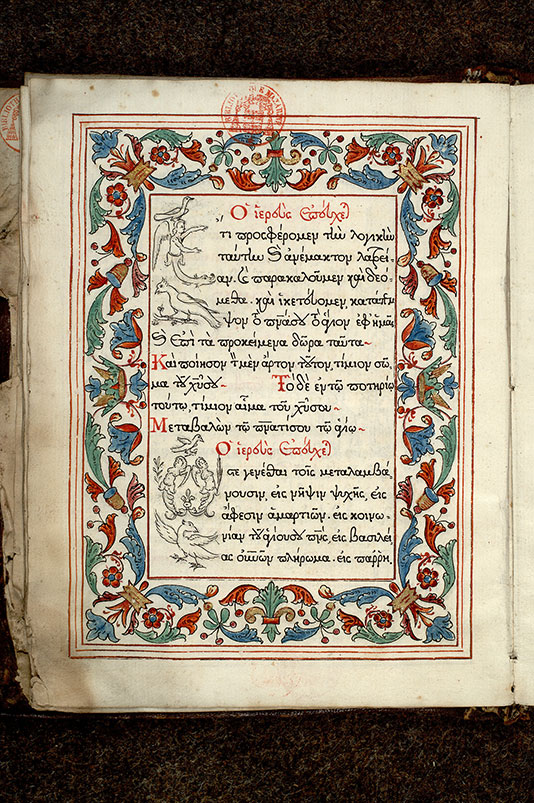 Ὁ ἱερεὺς ἐπεύχε)
τι προσφέρομεν τὴν λογικὴν
ταύτην καὶ ἀναίμακτον λατρεί-
αν. καὶ παρακαλοῦμεν καὶ δεό-
μεθα. καὶ ἱκετεύομεν, κατάπεμ
ψον τὸ πνᾶσου τὸ ἅγιον ἐφ ἡμᾶς
καὶ ἐπὶ τὰ προκείμενα δῶρα ταῦτα~
Καὶ ποίησον τὸ μὲν ἄρτον τοῦτον, τίμιον σῶ,
μα τοῦ χῦσου~ Τὸ δὲ ἐν τῷ ποτηρίῳ
τούτῳ, τίμιον αἷμα τοῦ χῦσου~
Μεταβαλὼν τῷ πνατίσου τῷ ἁγίῳ~
Ὁ ἱερεὺς ἐπεύχε)
στε γενέσθαι τοῖς μεταλαμβά,
νουσιν, εἰς νῆψιν ψυχῆς, εἰς
ἄφεσιν ἁμαρτιῶν. εἰς κοινω,
νίαν τοῦ ἁγίουσου πνς, εἰς βασιλεί
ας οὐνῶν πλήρωμα. εἰς παρρη,